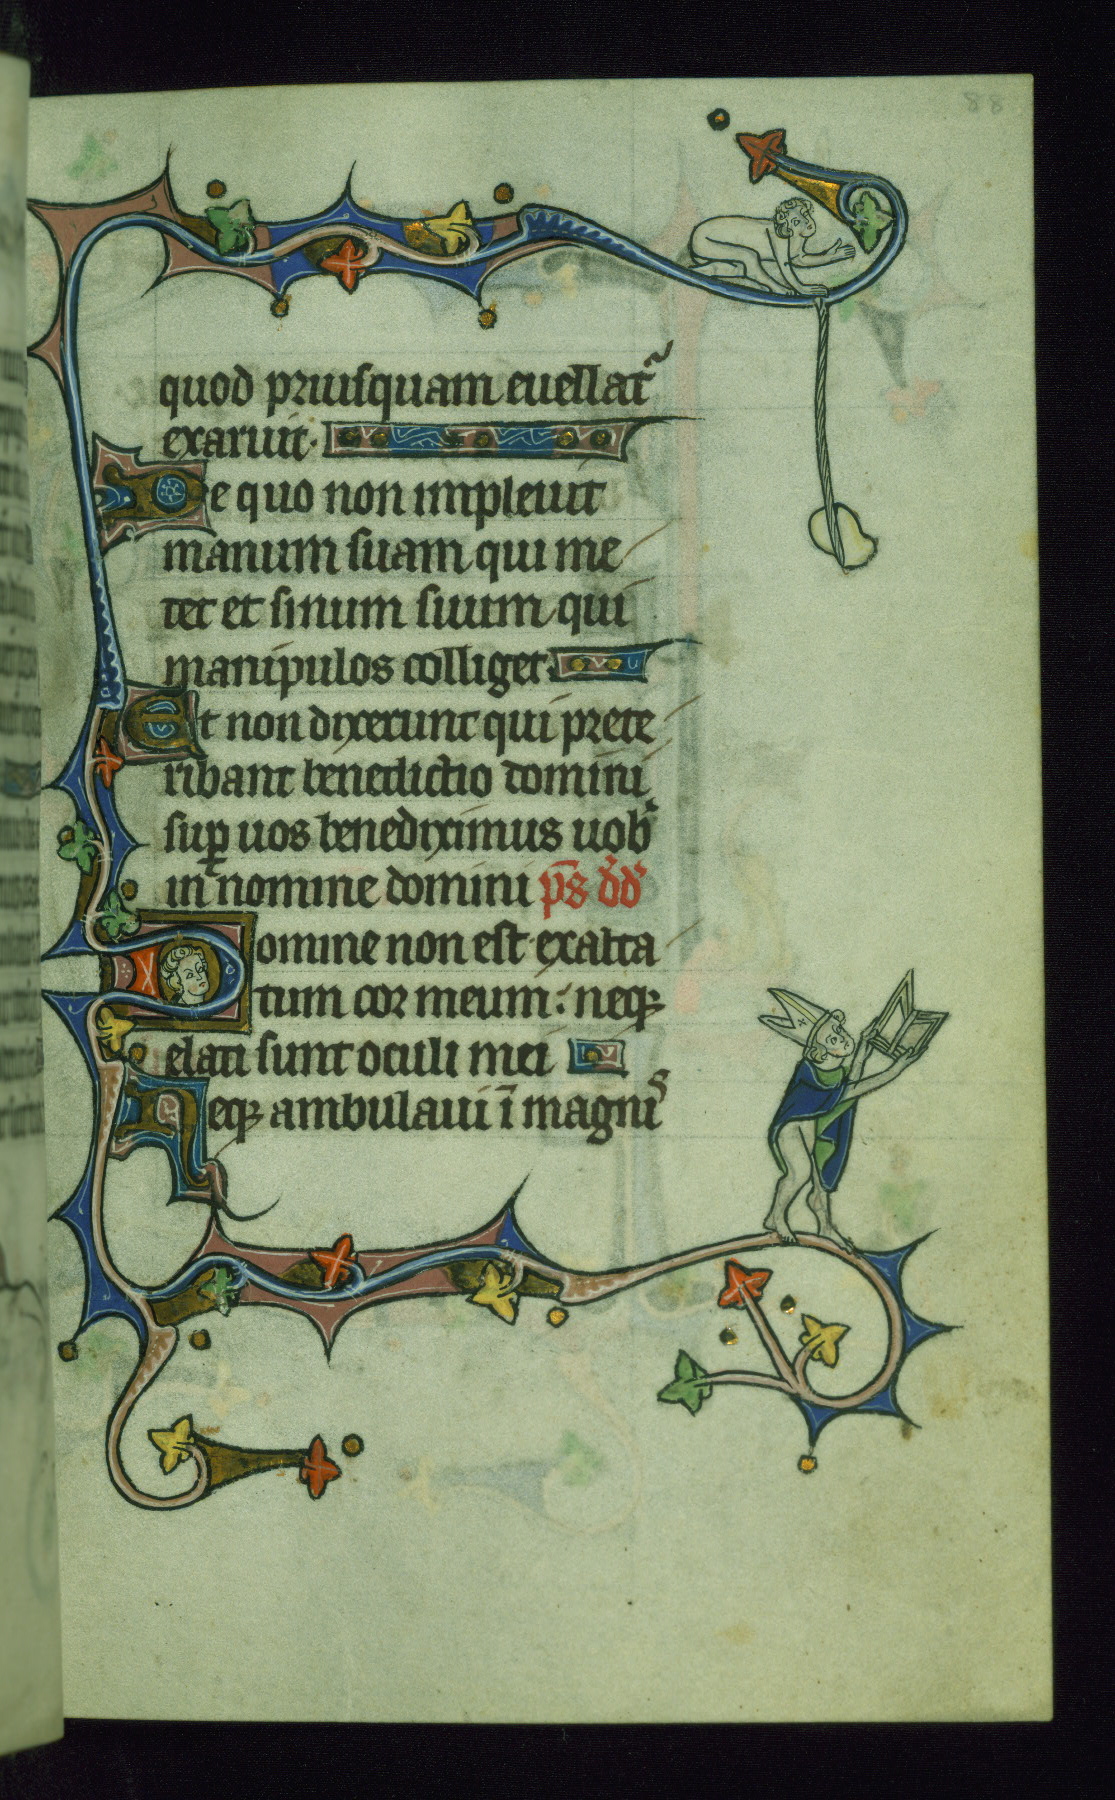 88
quod priusquam euellat᷑
exaruit.
De quo non impleuit
manum suam qui me
tet et sinum suum qui
manipulos colliget.
Et non dixerunt qui prete
ribant benedictio domini
suꝑ uos benediximus uob᷒
in nomine domini p̄s dd̓
Domine non est exalta
tum cor meum : neqꝫ
elati sunt oculi mei
Neqꝫ ambulaui ī magnis